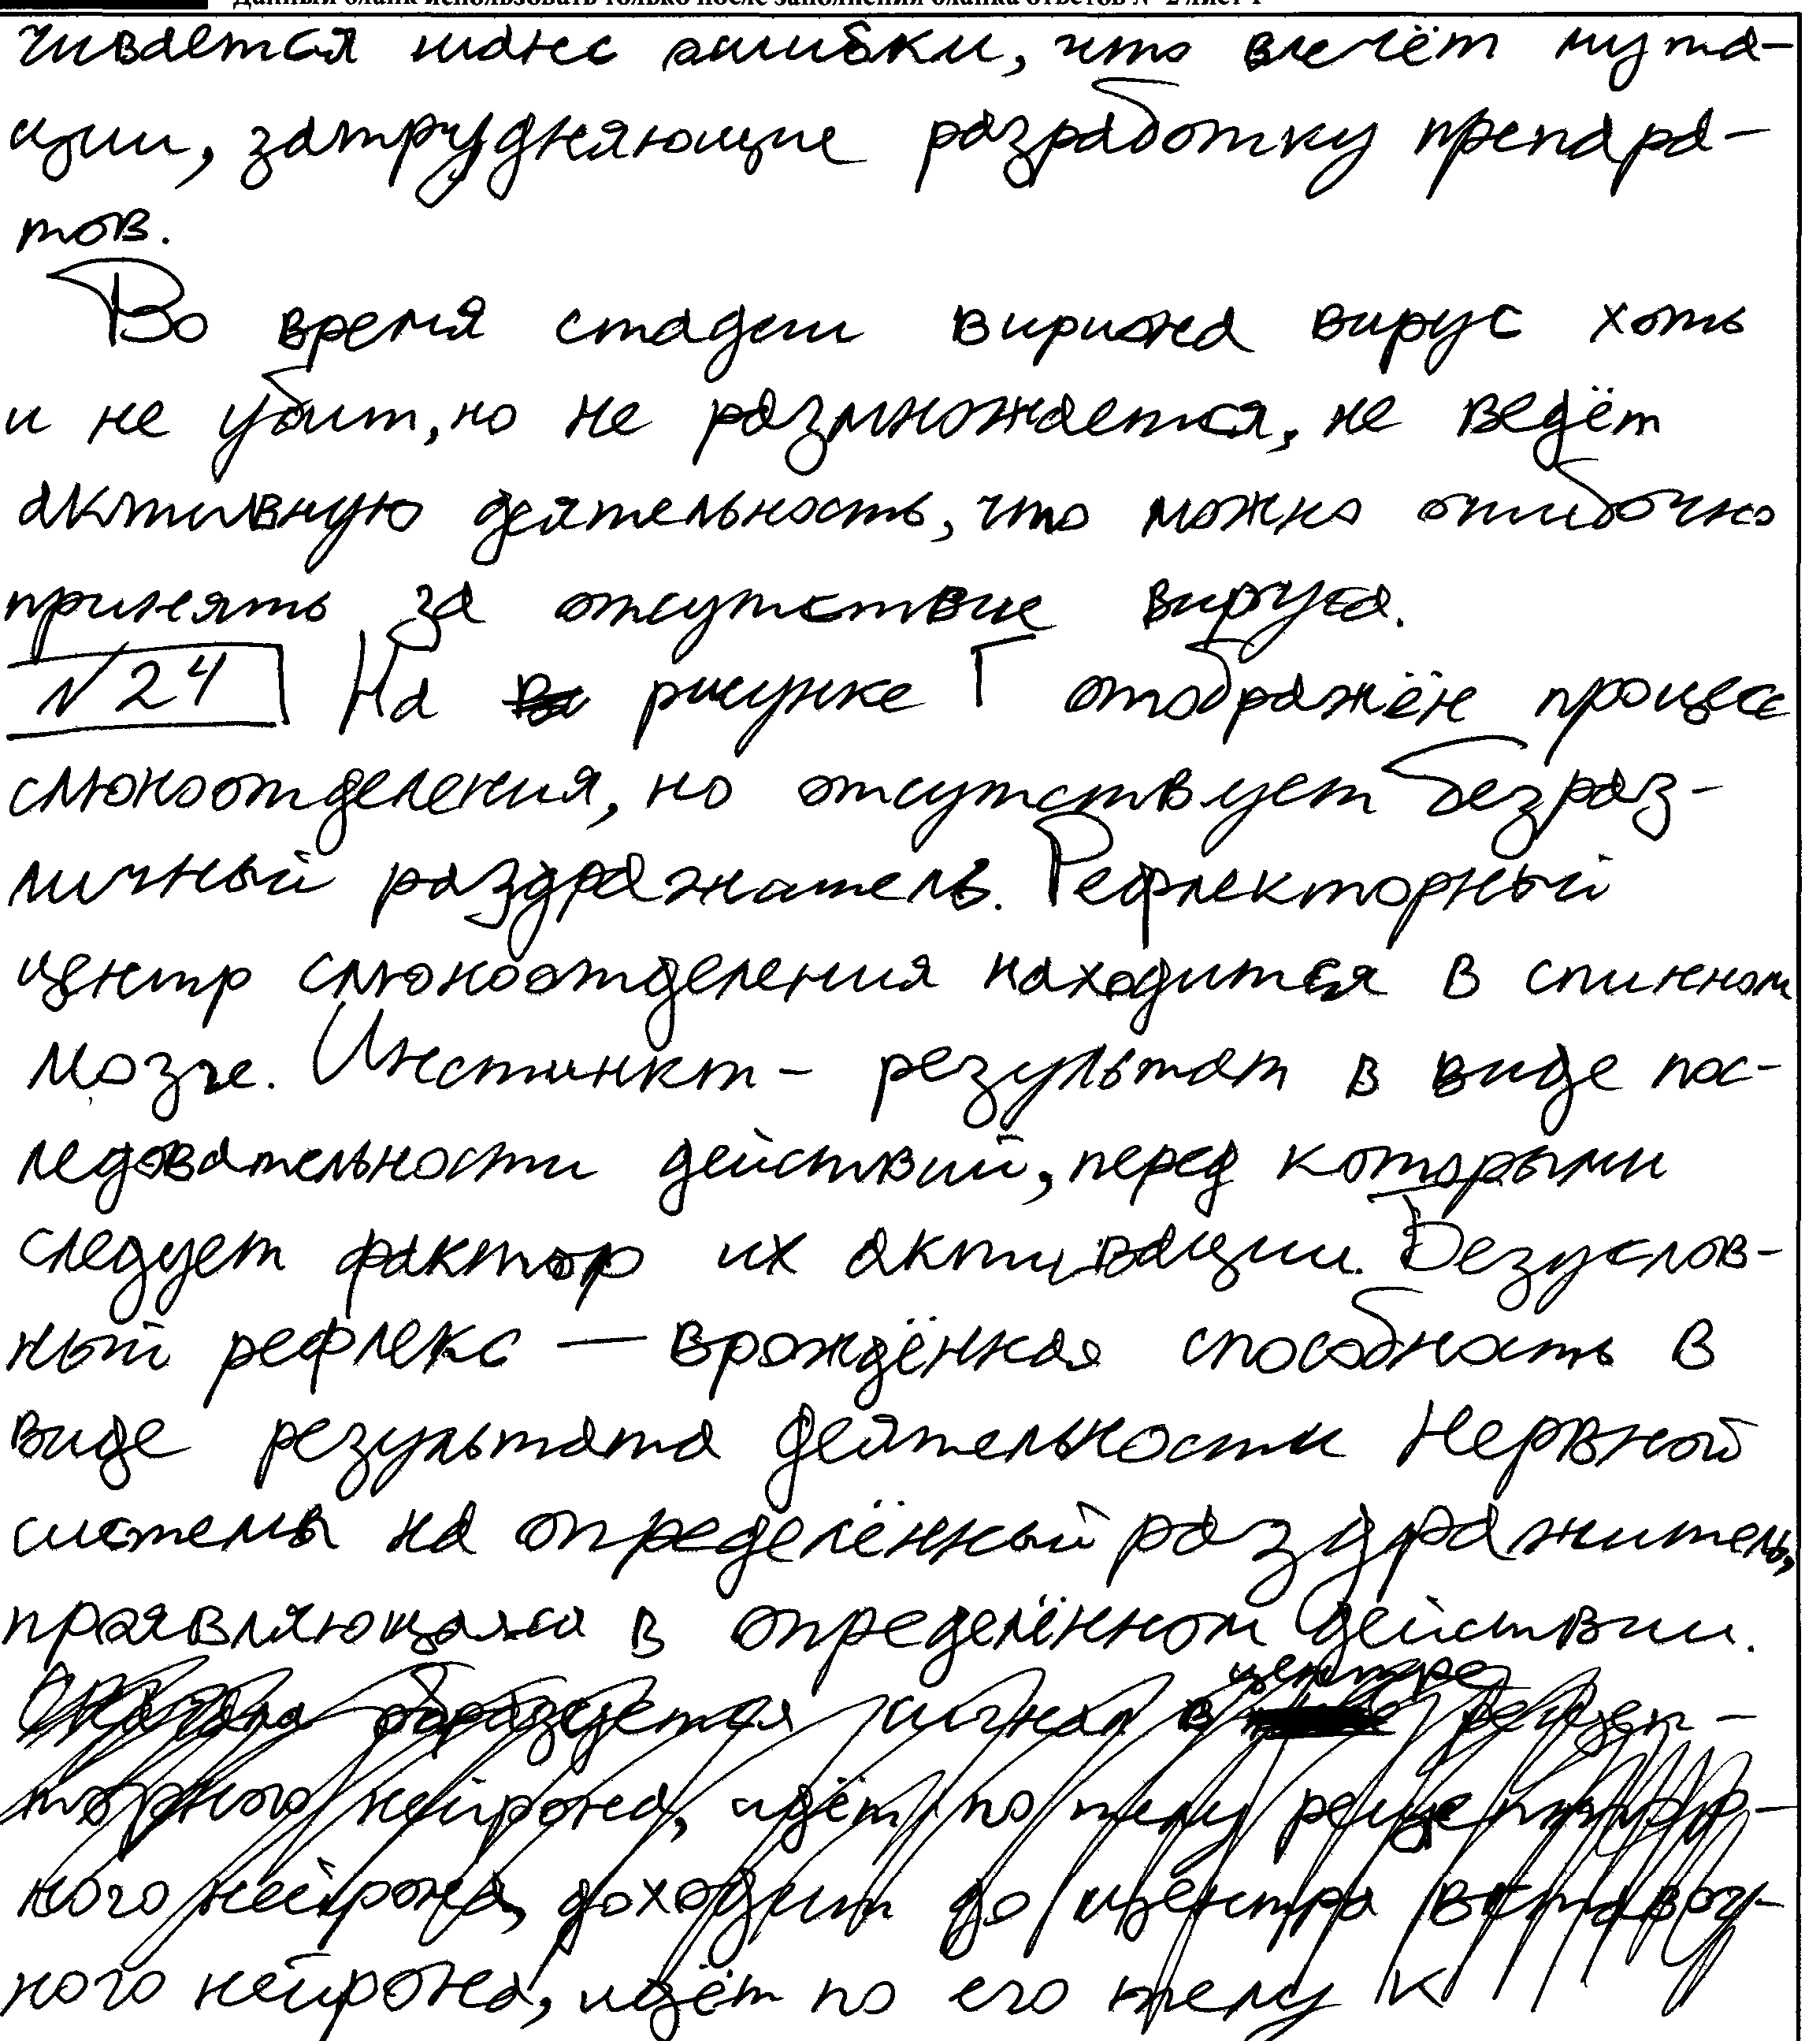 Данный бланк использовать только после заполнения бланка ответов № 2 лист 1
чивается шанс ошибки, что влечёт мута-
ции, затрудняющие разработку препара-
тов.
Во время стадии вириона вирус хоть
и не убит, но не размножается, не ведёт
активную деятельность, что можно ошибочно
принять за отсутствие вируса.
№24 На рисунке Г отображён процесс
слюноотделения, но отсутствует безраз-
личный раздражатель. Рефлекторный
центр слюноотделения находится в спинном
мозге. Инстинкт - результат в виде пос-
ледовательности действий, перед которыми
следует фактор их активации. Безуслов-
ный рефлекс — врождённая способность в
виде результата деятельности нервной
системы на определённый раздражитель,
проявляющаяся в определённом действии.
образуется сигнал в центре рецеп-
торного нейрона, идёт по телу рецептор-
ного нейрона, доходит до центра вставоч-
ного нейрона, идёт по его телу к